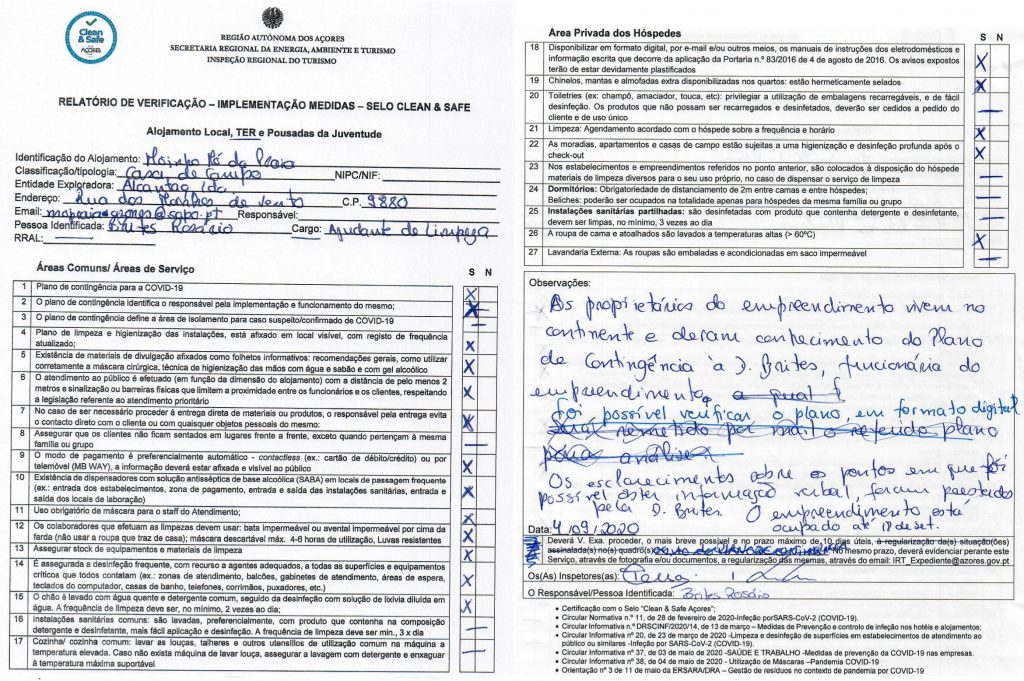 Clean & Safe
AÇORES
REGIÃO AUTÓNOMA DOS AÇORES
SECRETARIA REGIONAL DA ENERGIA, AMBIENTE E TURISMO
INSPEÇÃO REGIONAL DO TURISMO
RELATÓRIO DE VERIFICAÇÃO – IMPLEMENTAÇÃO MEDIDAS – SELO CLEAN & SAFE
Alojamento Local, TER e Pousadas da Juventude
Identificação do Alojamento: Moinho Pó da Praia
Classificação/tipologia: Casa de Campo NIPC/NIF:
Entidade Exploradora: Lda
Endereço: Rua dos Moinhos de Vento C.P. 9880
Email: Responsável:
Pessoa Identificada: Brites Rosário Cargo: Ajudante de Limpeza
RRAL:
Áreas Comuns/ Áreas de Serviço S N
1 Plano de contingência para a COVID-19 X
2 O plano de contingência identifica o responsável pela implementação e funcionamento do mesmo; X
3 O plano de contingência define a área de isolamento para caso suspeito/confirmado de COVID-19 –
4 Plano de limpeza e higienização das instalações, está afixado em local visível, com registo de frequência
atualizado; X
5 Existência de materiais de divulgação afixados como folhetos informativos: recomendações gerais, como utilizar
corretamente a máscara cirúrgica, técnica de higienização das mãos com água e sabão e com gel alcoólico X
6 O atendimento ao público é efetuado (em função da dimensão do alojamento) com a distância de pelo menos 2
metros e sinalização ou barreiras físicas que limitem a proximidade entre os funcionários e os clientes, respeitando
a legislação referente ao atendimento prioritário X
7 No caso de ser necessário proceder à entrega direta de materiais ou produtos, o responsável pela entrega evita
o contacto direto com o cliente ou com quaisquer objetos pessoais do mesmo: X
8 Assegurar que os clientes não ficam sentados em lugares frente a frente, exceto quando pertençam à mesma
família ou grupo –
9 O modo de pagamento é preferencialmente automático - contactless (ex.: cartão de débito/crédito) ou por
telemóvel (MB WAY), a informação deverá estar afixada e visível ao público X
10 Existência de dispensadores com solução antisséptica de base alcoólica (SABA) em locais de passagem frequente
(ex.: entrada dos estabelecimentos, zona de pagamento, entrada e saída das instalações sanitárias, entrada e
saída dos locais de laboração) X
11 Uso obrigatório de máscara para o staff do Atendimento; X
12 Os colaboradores que efetuam as limpezas devem usar: bata impermeável ou avental impermeável por cima da
farda (não usar a roupa que traz de casa); máscara descartável máx. 4-6 horas de utilização, Luvas resistentes X
13 Assegurar stock de equipamentos e materiais de limpeza X
14 É assegurada a desinfeção frequente, com recurso a agentes adequados, a todas as superfícies e equipamentos
críticos que todos contatam (ex.: zonas de atendimento, balcões, gabinetes de atendimento, áreas de espera,
teclados do computador, casas de banho, telefones, corrimões, puxadores, etc.) X
15 O chão é lavado com água quente e detergente comum, seguido da desinfeção com solução de lixívia diluída em
água. A frequência de limpeza deve ser, no mínimo, 2 vezes ao dia; X
16 Instalações sanitárias comuns: são lavadas, preferencialmente, com produto que contenha na composição
detergente e desinfetante, mais fácil aplicação e desinfeção. A frequência de limpeza deve ser min., 3 x dia –
17 Cozinha/ cozinha comum: lavar as louças, talheres e outros utensílios de utilização comum na máquina a
temperatura elevada. Caso não exista máquina de lavar louça, assegurar a lavagem com detergente e enxaguar
à temperatura máxima suportável –
Área Privada dos Hóspedes S N
18 Disponibilizar em formato digital, por e-mail e/ou outros meios, os manuais de instruções dos eletrodomésticos e
informação escrita que decorre da aplicação da Portaria n.º 83/2016 de 4 de agosto de 2016. Os avisos expostos
terão de estar devidamente plastificados X
19 Chinelos, mantas e almofadas extra disponibilizadas nos quartos: estão hermeticamente selados X
20 Toiletries (ex: champô, amaciador, touca, etc): privilegiar a utilização de embalagens recarregáveis, e de fácil
desinfeção. Os produtos que não possam ser recarregados e desinfetados, deverão ser cedidos a pedido do
cliente e de uso único –
21 Limpeza: Agendamento acordado com o hóspede sobre a frequência e horário X
22 As moradias, apartamentos e casas de campo estão sujeitas a uma higienização e desinfeção profunda após o
check-out X
23 Nos estabelecimentos e empreendimentos referidos no ponto anterior, são colocados à disposição do hóspede
materiais de limpeza diversos para o seu uso próprio, no caso de dispensar o serviço de limpeza –
24 Dormitórios: Obrigatoriedade de distanciamento de 2m entre camas e entre hóspedes;
Beliches: poderão ser ocupados na totalidade apenas para hóspedes da mesma família ou grupo –
25 Instalações sanitárias partilhadas: são desinfetadas com produto que contenha detergente e desinfetante,
devem ser limpas, no mínimo, 3 vezes ao dia –
26 A roupa de cama e atoalhados são lavados a temperaturas altas (> 60ºC) X
27 Lavandaria Externa: As roupas são embaladas e acondicionadas em saco impermeável –
Observações:
Os proprietários do empreendimento vivem no
continente e deram conhecimento do Plano
de Contingência à D. Brites, funcionária do
empreendimento, a qual
foi possível verificar o plano, em formato digital
remetido por mail o referido plano
para análise
Os esclarecimentos sobre os pontos em que foi
possível obter informação verbal, foram prestados
pela D. Brites. O empreendimento está
ocupado até 12 de set.
Data: 4/09/2020
Deverá V. Exa. proceder, o mais breve possível e no prazo máximo de 10 dias úteis, a regularização da(s) situação(ões)
assinalada(s) no(s) quadro(s) no mesmo prazo, deverá evidenciar perante este
Serviço, através de fotografia e/ou documentos, a regularização das mesmas, através do email: IRT_Expediente@azores.gov.pt
Os(As) Inspetores(as):
O Responsável/Pessoa Identificada: Brites Rosário
• Certificação com o Selo "Clean & Safe Açores";
• Circular Normativa n.º 11, de 28 de fevereiro de 2020-Infeção porSARS-CoV-2 (COVID-19).
• Circular Informativa n.º DRSCINF/2020/14, de 13 de março – Medidas de Prevenção e controlo de infeção nos hotéis e alojamentos;
• Circular Informativa nº 20, de 23 de março de 2020 -Limpeza e desinfeção de superfícies em estabelecimentos de atendimento ao
público ou similares -Infeção por SARS-CoV-2 (COVID-19).
• Circular Informativa nº 37, de 03 de maio de 2020 -SAÚDE E TRABALHO -Medidas de prevenção da COVID-19 nas empresas.
• Circular Informativa nº 38, de 04 de maio de 2020 - Utilização de Máscaras –Pandemia COVID-19
• Orientação nº 3 de 11 de maio da ERSARA/DRA – Gestão de resíduos no contexto de pandemia por COVID-19